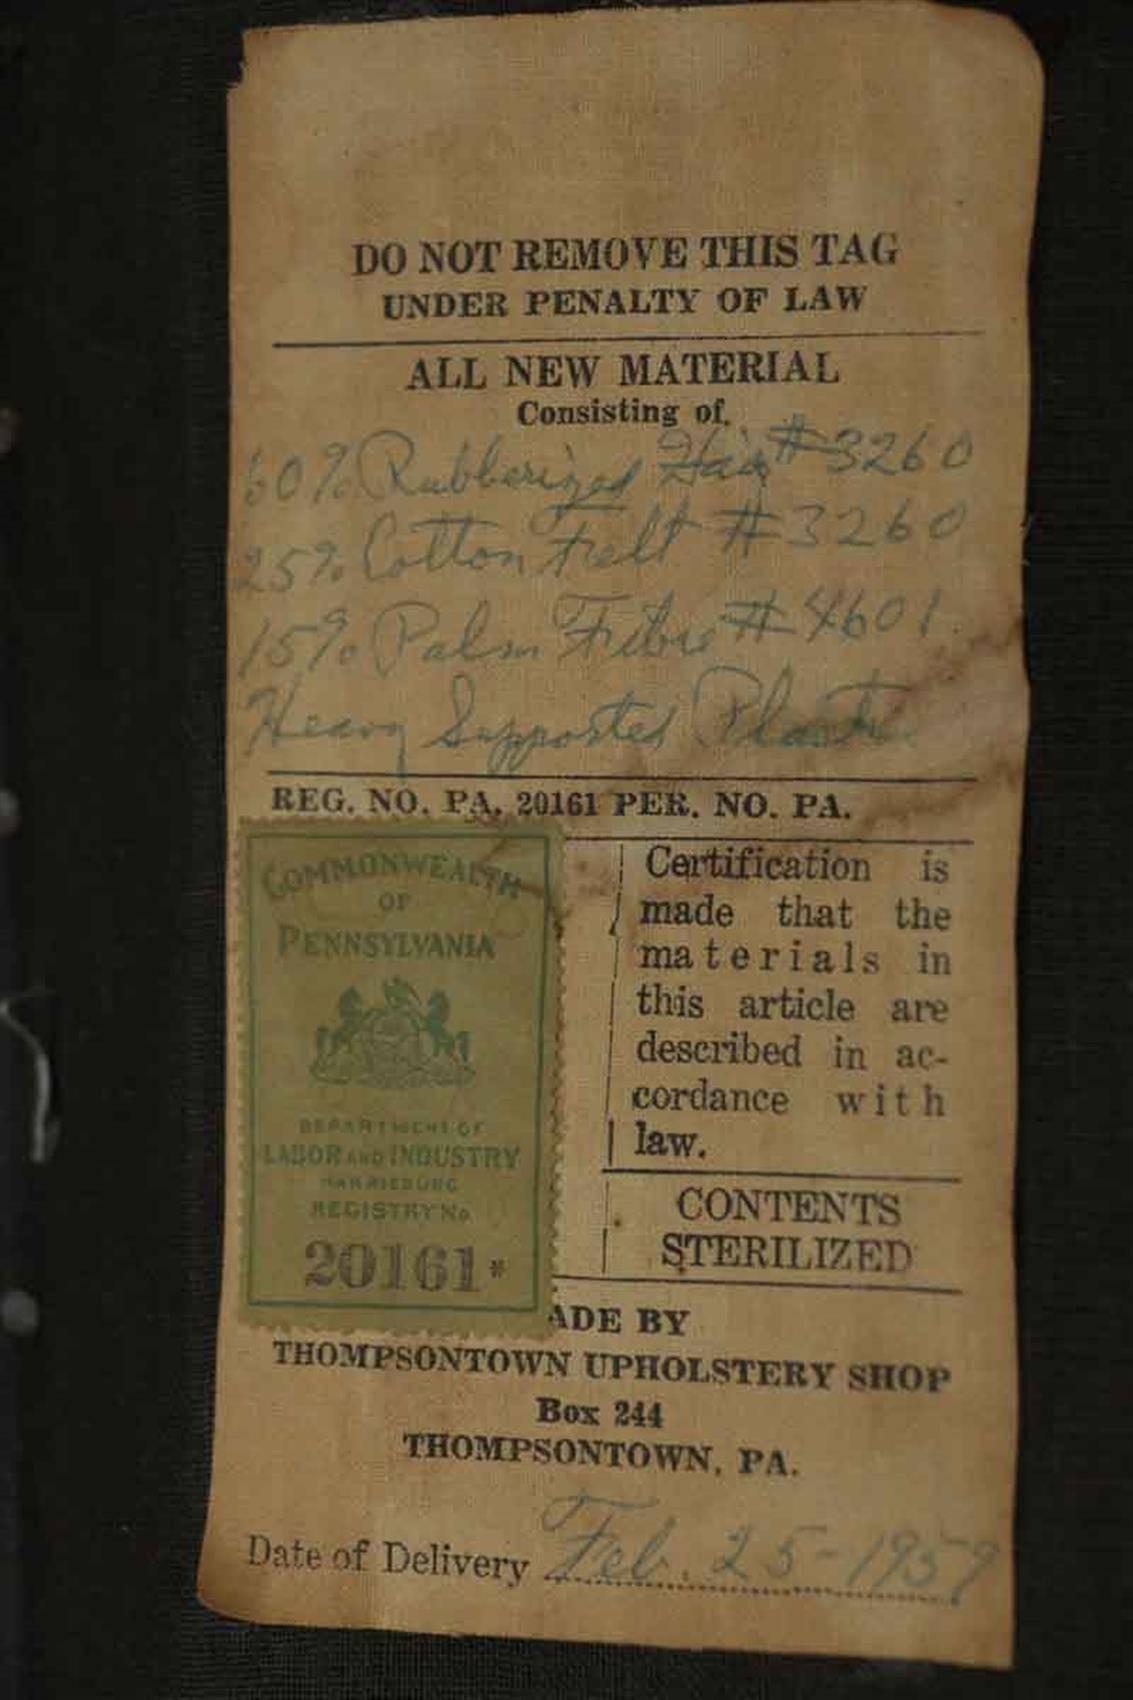 DO NOT REMOVE THIS TAG
UNDER PENALTY OF LAW
ALL NEW MATERIAL
Consisting of.
60% Rubberized Hair #3260
25% Cotton Felt #3260
15% Palm Fibre #4601
Heavy Supported Plastic
REG. NO. PA. 20161 PER. NO. PA.
COMMONWEALTH
OF
PENNSYLVANIA
DEPARTMENT OF
LABOR AND INDUSTRY
HARRISBURG
REGISTRY No.
20161*
Certification is
made that the
materials in
this article are
described in ac-
cordance with
law.
CONTENTS
STERILIZED
ADE BY
THOMPSONTOWN UPHOLSTERY SHOP
Box 244
THOMPSONTOWN, PA.
Date of Delivery Feb. 25-1959